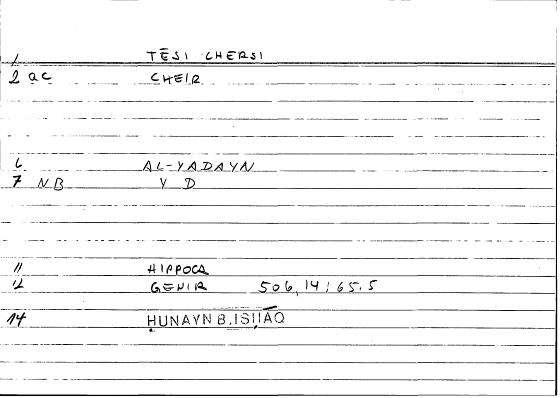 1 TĒSI CHERSI
2 QC CHEIR
6 AL-YADAYN
7 NB Y D
11 HIPPOCR
12 GENIR 506,14; 65.5
14 ḤUNAYN B. ISḤĀQ